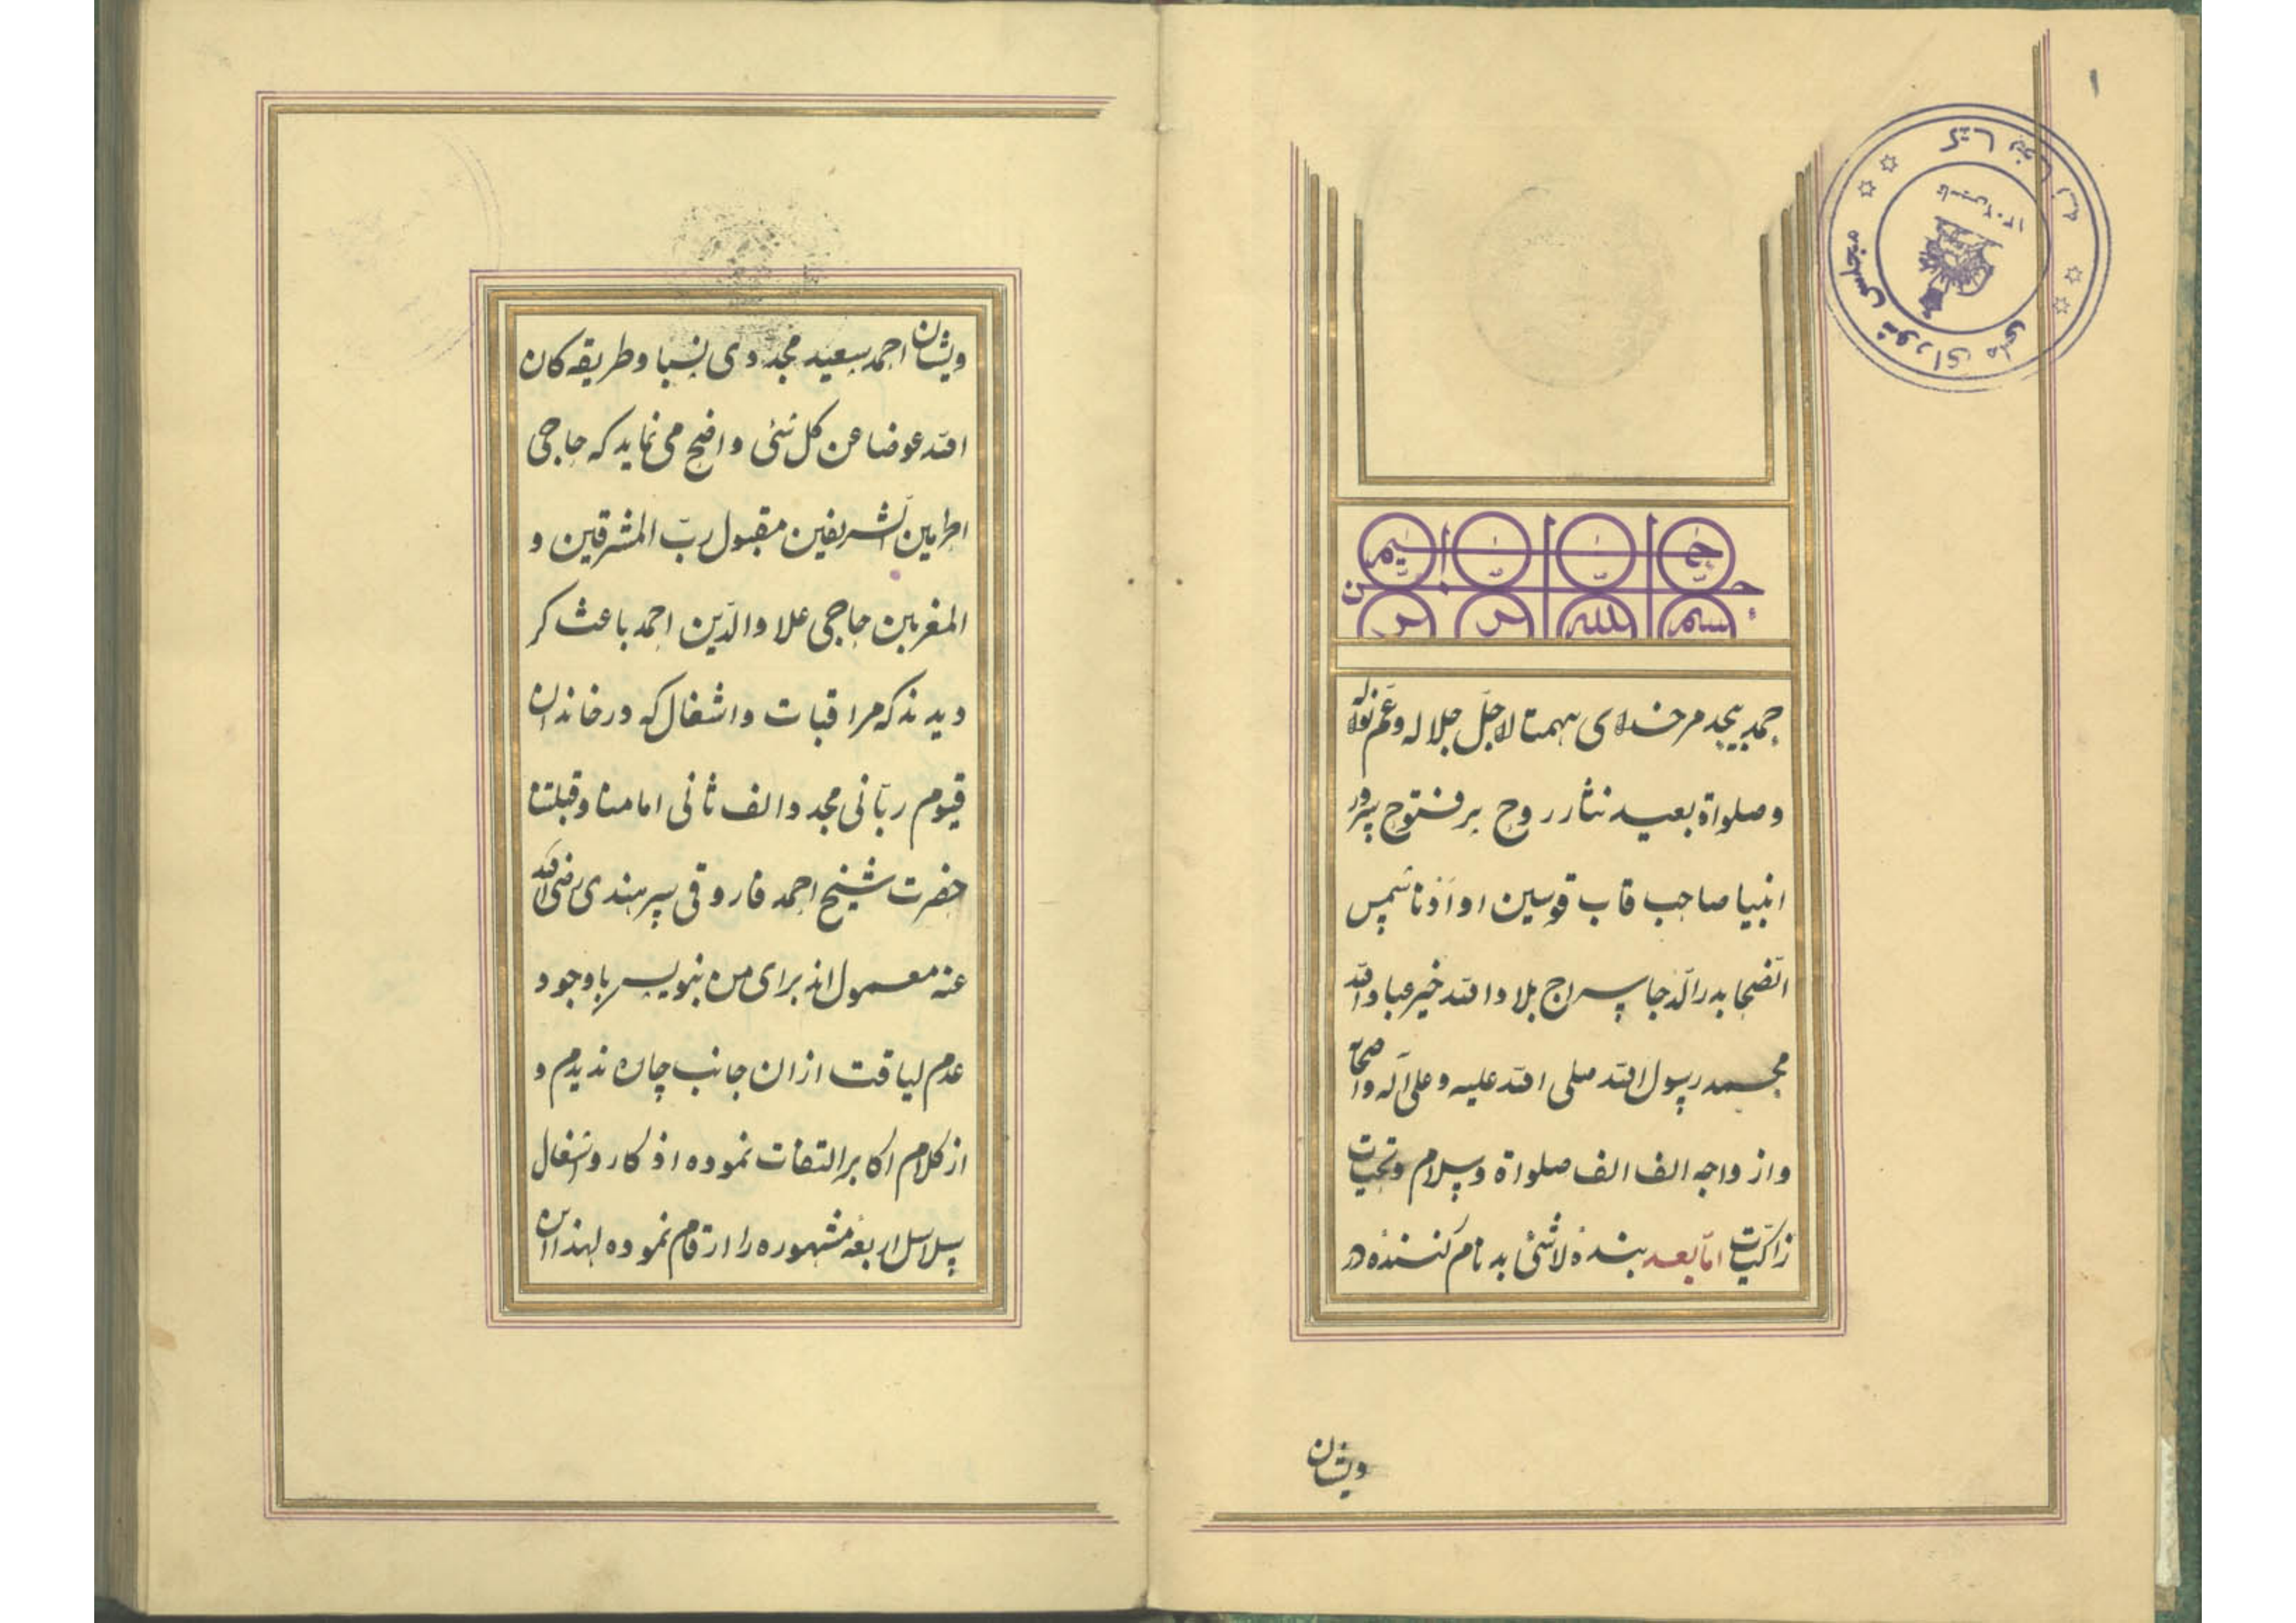 ۱
کتابخانه
مجلس شورای ملی
تاسیس ۱۳۰۲
بسم الله الرحمن الرحیم
حمد بیحد مر خدای بهمتا لا جلّ جلاله و عمّ نواله
و صلواة بعید نثار روح پر فتوح سرور
انبیا صاحب قاب قوسین او ادنا شمس
الضحا بدر الدّجا سراج بلاد الله خیر عباد الله
محمد رسول الله صلی الله علیه و علی آله و اصحابه
و ازواجه الف الف صلواة و سلام و تحیات
زاکیات امّا بعد بندهٔ لاشئ بد نام کنندهٔ در
ویشان
ویشان احمد سعید مجددی نسبا و طریقه کان
الله عوضا عن کل شئی واضح می نماید که حاجی
الحرمین الشریفین مقبول ربّ المشرقین و
المغربین حاجی علاو الدّین احمد باعث کر
دیدند که مراقبات و اشغال که در خاندان
قیوم ربّانی مجدد الف ثانی امامنا و قبلتنا
حضرت شیخ احمد فاروقی سرهندی رضی الله
عنه معمول اند برای من بنویس با وجود
عدم لیاقت ازان جانب چاره ندیدم و
از کلام اکابر التفات نموده اذکار و اشغال
سلاسل اربعه مشهوره را ارقام نموده لهذا این